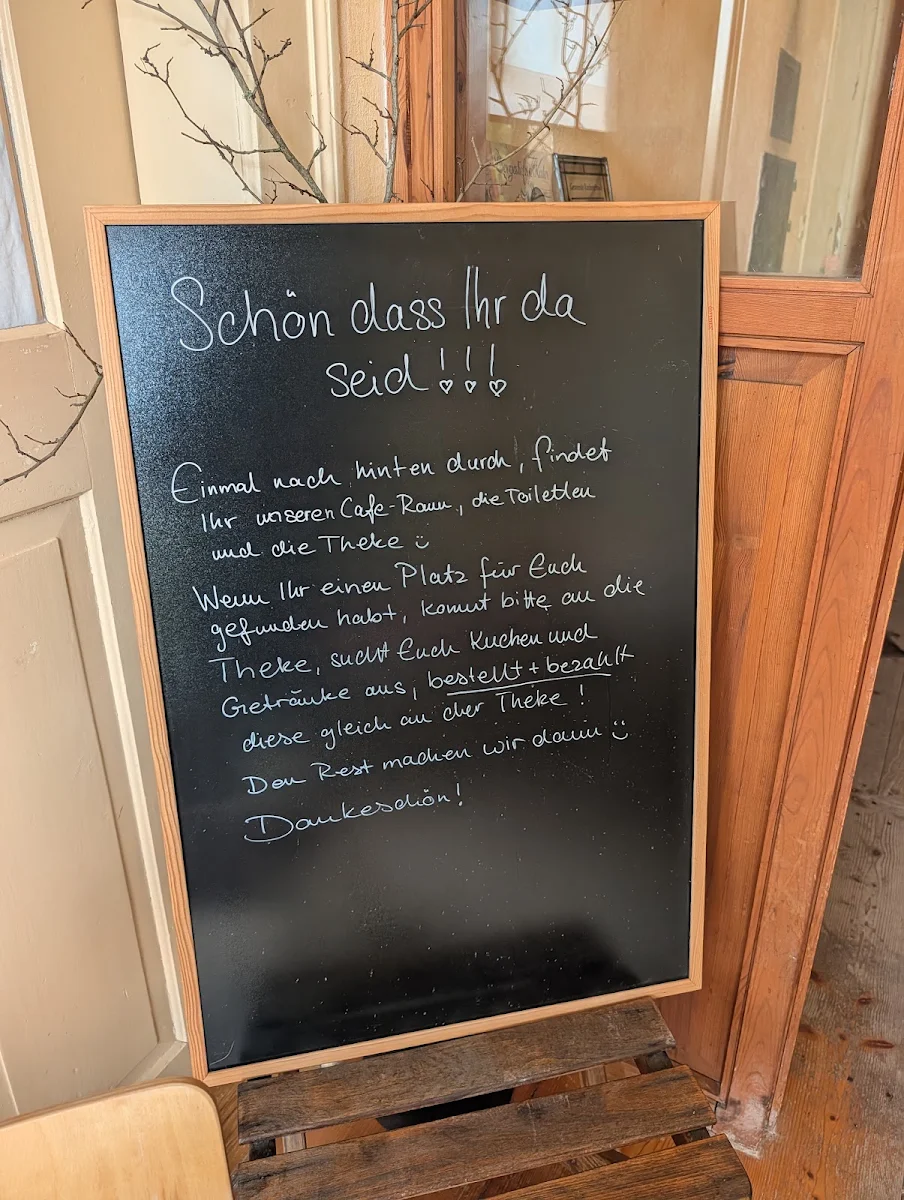 Schön dass Ihr da
seid!!!
Einmal nach hinten durch, findet
Ihr unseren Cafe-Raum, die Toiletten
und die Theke ü
Wenn Ihr einen Platz für Euch
gefunden habt, kommt bitte an die
Theke, sucht Euch Kuchen und
Getränke aus, bestellt + bezahlt
diese gleich an der Theke!
Den Rest machen wir dann ü
Dankeschön!